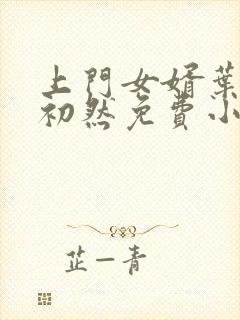 上門女婿葉
初然免費小
芷一青